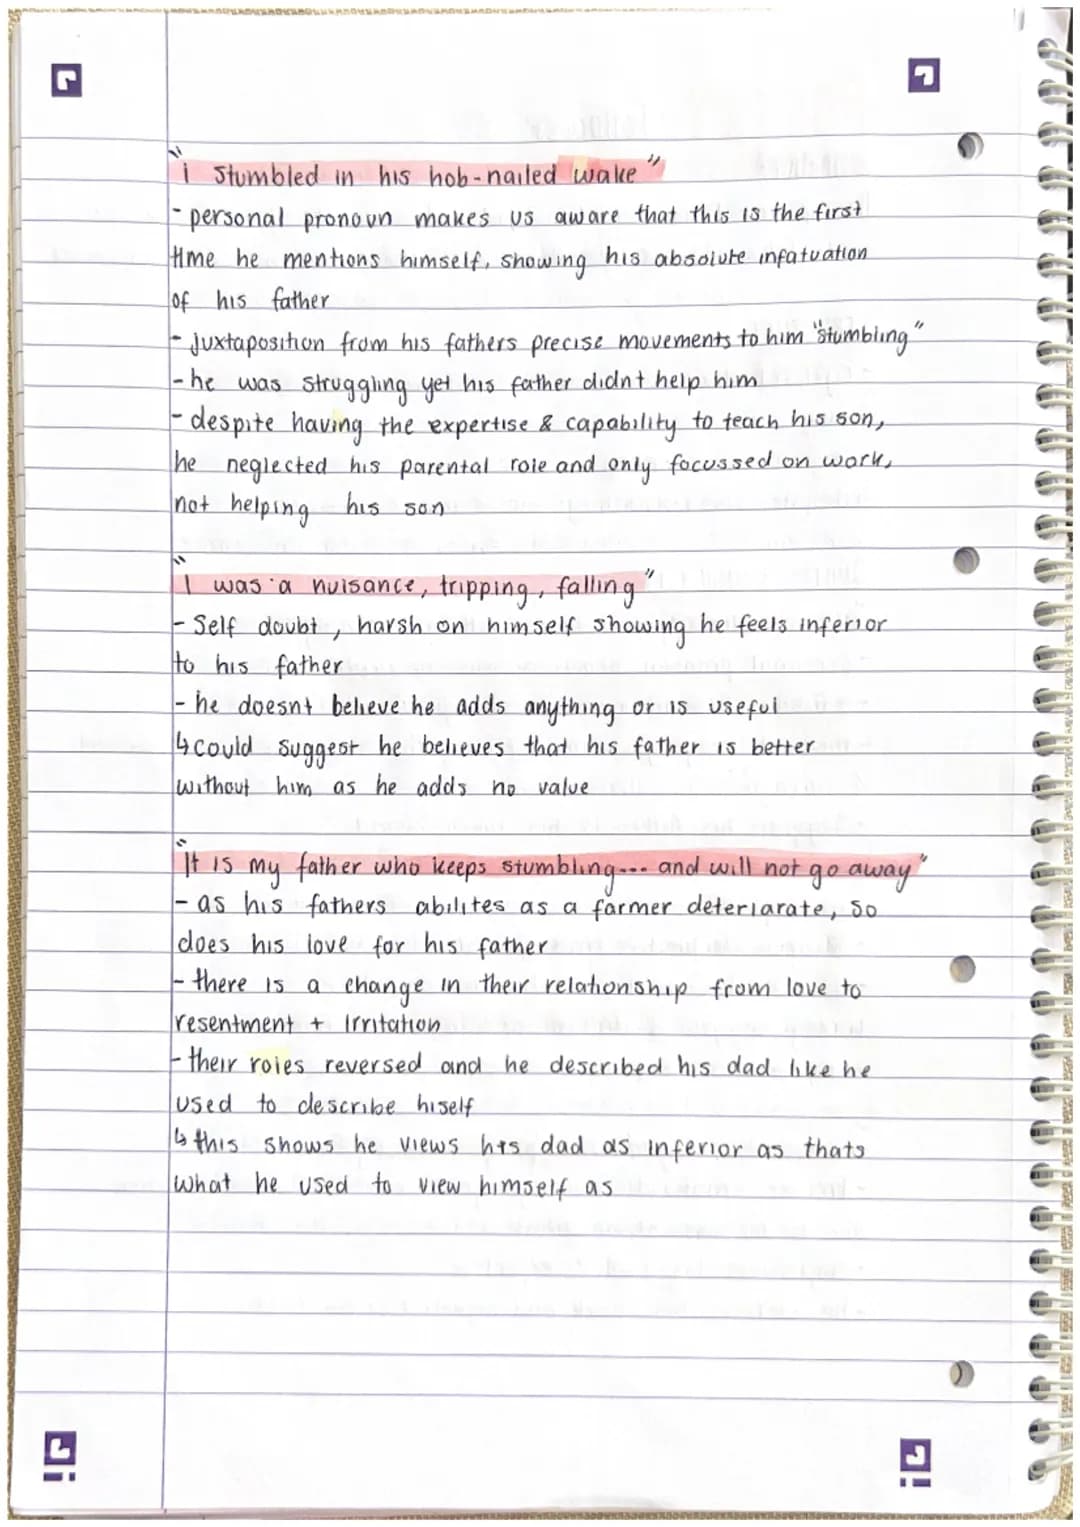 "i stumbled in his hob-nailed wake"
- personal pronoun makes us aware that this is the first
time he mentions himself, showing his absolute infatuation
of his father
- juxtaposition from his fathers precise movements to him "stumbling"
- he was struggling yet his father didnt help him
- despite having the expertise & capability to teach his son,
he neglected his parental role and only focussed on work,
not helping his son
"I was a nuisance, tripping, falling"
- Self doubt, harsh on himself showing he feels inferior
to his father
- he doesnt believe he adds anything or is useful
↳ could suggest he believes that his father is better
without him as he adds no value
"It is my father who keeps stumbling... and will not go away"
- as his fathers abilites as a farmer deteriarate, so
does his love for his father
- there is a change in their relationship from love to
resentment + irritation
- their roles reversed and he described his dad like he
used to describe hiself
↳ this shows he views his dad as inferior as thats
what he used to view himself as